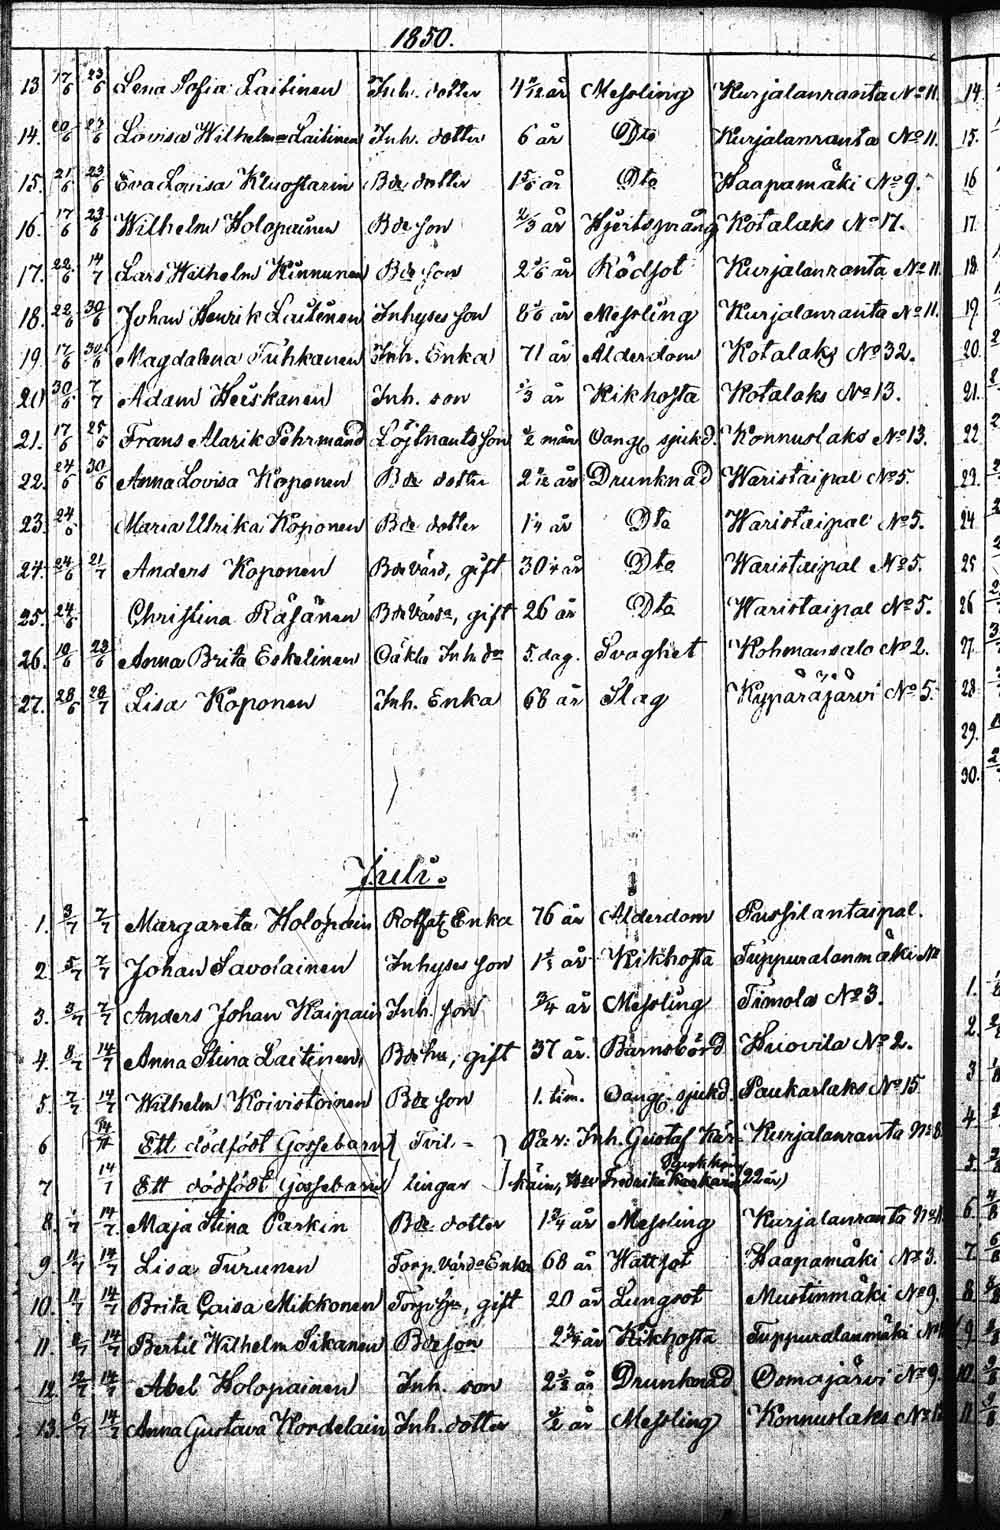 1850.
13 17/6 23/6 Lena Sofia Laitinen Inh. dotter 4 år Messling Kurjalanranta No 11.
14. 20/6 23/6 Lovisa Wilhelmina Laitinen Inh. dotter 6 år Dto Kurjalanranta No 11.
15. 21/6 23/6 Eva Lovisa Kluostarin Bde dotter 1 5/6 år Dto Haapamäki No 9.
16. 17/6 23/6 Wilhelm Holopainen Bde son 2/3 år Hjertsprång Kotalaks No 17.
17. 22/6 14/7 Lars Wilhelm Kinnunen Bde son 2 5/6 år Rödsot Kurjalanranta No 11.
18. 22/6 30/6 Johan Henrik Laitinen Inhyses son 8 5/6 år Messling Kurjalanranta No 11.
19. 17/6 30/6 Magdalena Tuhkanen Inh. Enka 71 år Ålderdom Kotalaks No 32.
20 30/6 7/7 Adam Heiskanen Inh. son 1/3 år Kikhosta Kotalaks No 13.
21. 17/6 25/6 Frans Alarik Fehrmand Löjtnants son 1/2 mån Oang. sjukd. Konnuslaks No 13.
22. 24/6 30/6 Anna Lovisa Koponen Bde dotter 2 år Drunknad Waristaipal No 5.
23. 24/6 Maria Ulrika Koponen Bde dotter 1 1/4 år Dto Waristaipal No 5.
24. 24/6 21/7 Anders Koponen Bde värd, gift 30 1/4 år Dto Waristaipal No 5.
25. 24/6 Christina Räsänen Bde värda, gift 26 år Dto Waristaipal No 5.
26. 10/6 23/6 Anna Brita Eskelinen Oäkta Inh. dr 5. dag. Svaghet Kohmansalo No 2.
27. 28/6 28/7 Lisa Koponen Inh. Enka 68 år Slag Kypäräjärvi No 5.
Juli.
1. 3/7 7/7 Margareta Holopain Enka 76 år Ålderdom Pussilantaipal.
2. 5/7 7/7 Johan Savolainen Inhyses son 1 1/3 år Kikhosta Tuppuralanmäki No
3. 3/7 7/7 Anders Johan Kaipain Inh. son 3/4 år Messling Timola No 3.
4. 8/7 14/7 Anna Stina Laitinen Bde hu, gift 37 år Barnsbörd Huovila No 2.
5. 7/7 14/7 Wilhelm Koivistoinen Bde son 1. tim. Oang. sjukd. Paukarlaks No 15
6 14/7 Ett dödfödt Gossebarn Tvil- Par: Inh. Gustaf Kär- Kurjalanranta No 8
7 14/7 Ett dödfödt Gossebarn lingar käin, Fredrika 22 år)
8. 14/7 Maja Stina Parkin Bde dotter 1 3/4 år Messling Kurjalanranta No
9. 11/7 14/7 Lisa Turunen Torp. värda Enka 68 år Wattsot Haapamäki No 3.
10. 11/7 14/7 Brita Caisa Mikkonen Torp. hu, gift 20 år Lungsot Mustinmäki No 9.
11. 8/7 14/7 Bertil Wilhelm Sikanen Bde son 2 3/4 år Kikhosta Tuppuralanmäki No
12. 12/7 14/7 Abel Holopainen Inh. son 2 2/3 år Drunknad Osmajärvi No 9.
13. 6/7 14/7 Anna Gustava Kordelain Inh. dotter 1/2 år Messling Konnuslaks No
14.
15.
16
17.
18.
19.
20.
21.
22
23.
24.
25
26
27.
28.
29.
30.
1.
2.
3
4
5.
6.
7.
8
9.
10.
11